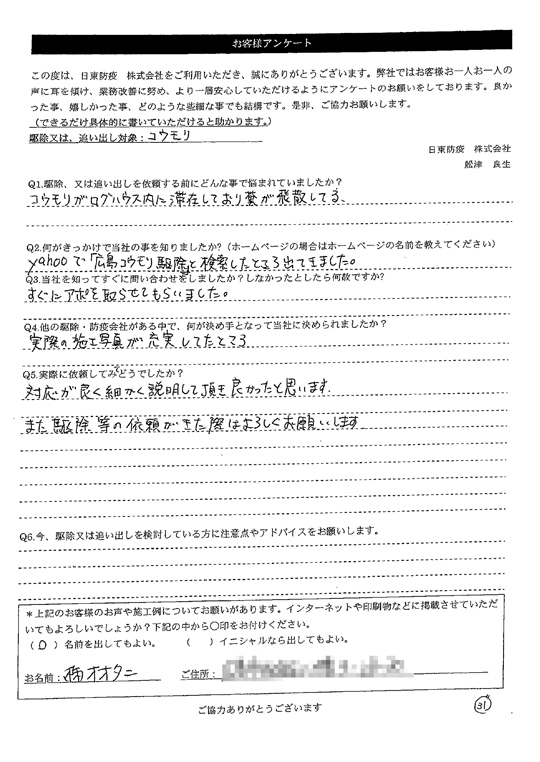 お客様アンケート
この度は、日東防疫　株式会社をご利用いただき、誠にありがとうございます。弊社ではお客様お一人お一人の
声に耳を傾け、業務改善に努め、より一層安心していただけるようにアンケートのお願いをしております。良か
った事、嬉しかった事、どのような些細な事でも結構です。是非、ご協力お願いします。
（できるだけ具体的に書いていただけると助かります。）
駆除又は、追い出し対象：コウモリ
日東防疫　株式会社
舩津　良生
Q1.駆除、又は追い出しを依頼する前にどんな事で悩まれていましたか？
コウモリがログハウス内に滞在しており糞が飛散してる、
Q2.何がきっかけで当社の事を知りましたか？（ホームページの場合はホームページの名前を教えてください）
yahooで「広島コウモリ駆除」と検索したところ出てきました。
Q3.当社を知ってすぐに問い合わせをしましたか？しなかったとしたら何故ですか？
すぐにアポを取らせてもらいました。
Q4.他の駆除・防疫会社がある中で、何が決め手となって当社に決められましたか？
実際の施工写真が充実してたところ
Q5.実際に依頼してみどうでしたか？
対応が良く細かく説明して頂き良かったと思います.
また駆除等の依頼がきた際はよろしくお願いします
Q6.今、駆除又は追い出しを検討している方に注意点やアドバイスをお願いします。
＊上記のお客様のお声や施工例についてお願いがあります。インターネットや印刷物などに掲載させていただ
いてもよろしいでしょうか？下記の中から〇印をお付けください。
（ O ）名前を出してもよい。　（　）イニシャルなら出してもよい。
お名前：㈱オオタニ　ご住所：
ご協力ありがとうございます
31